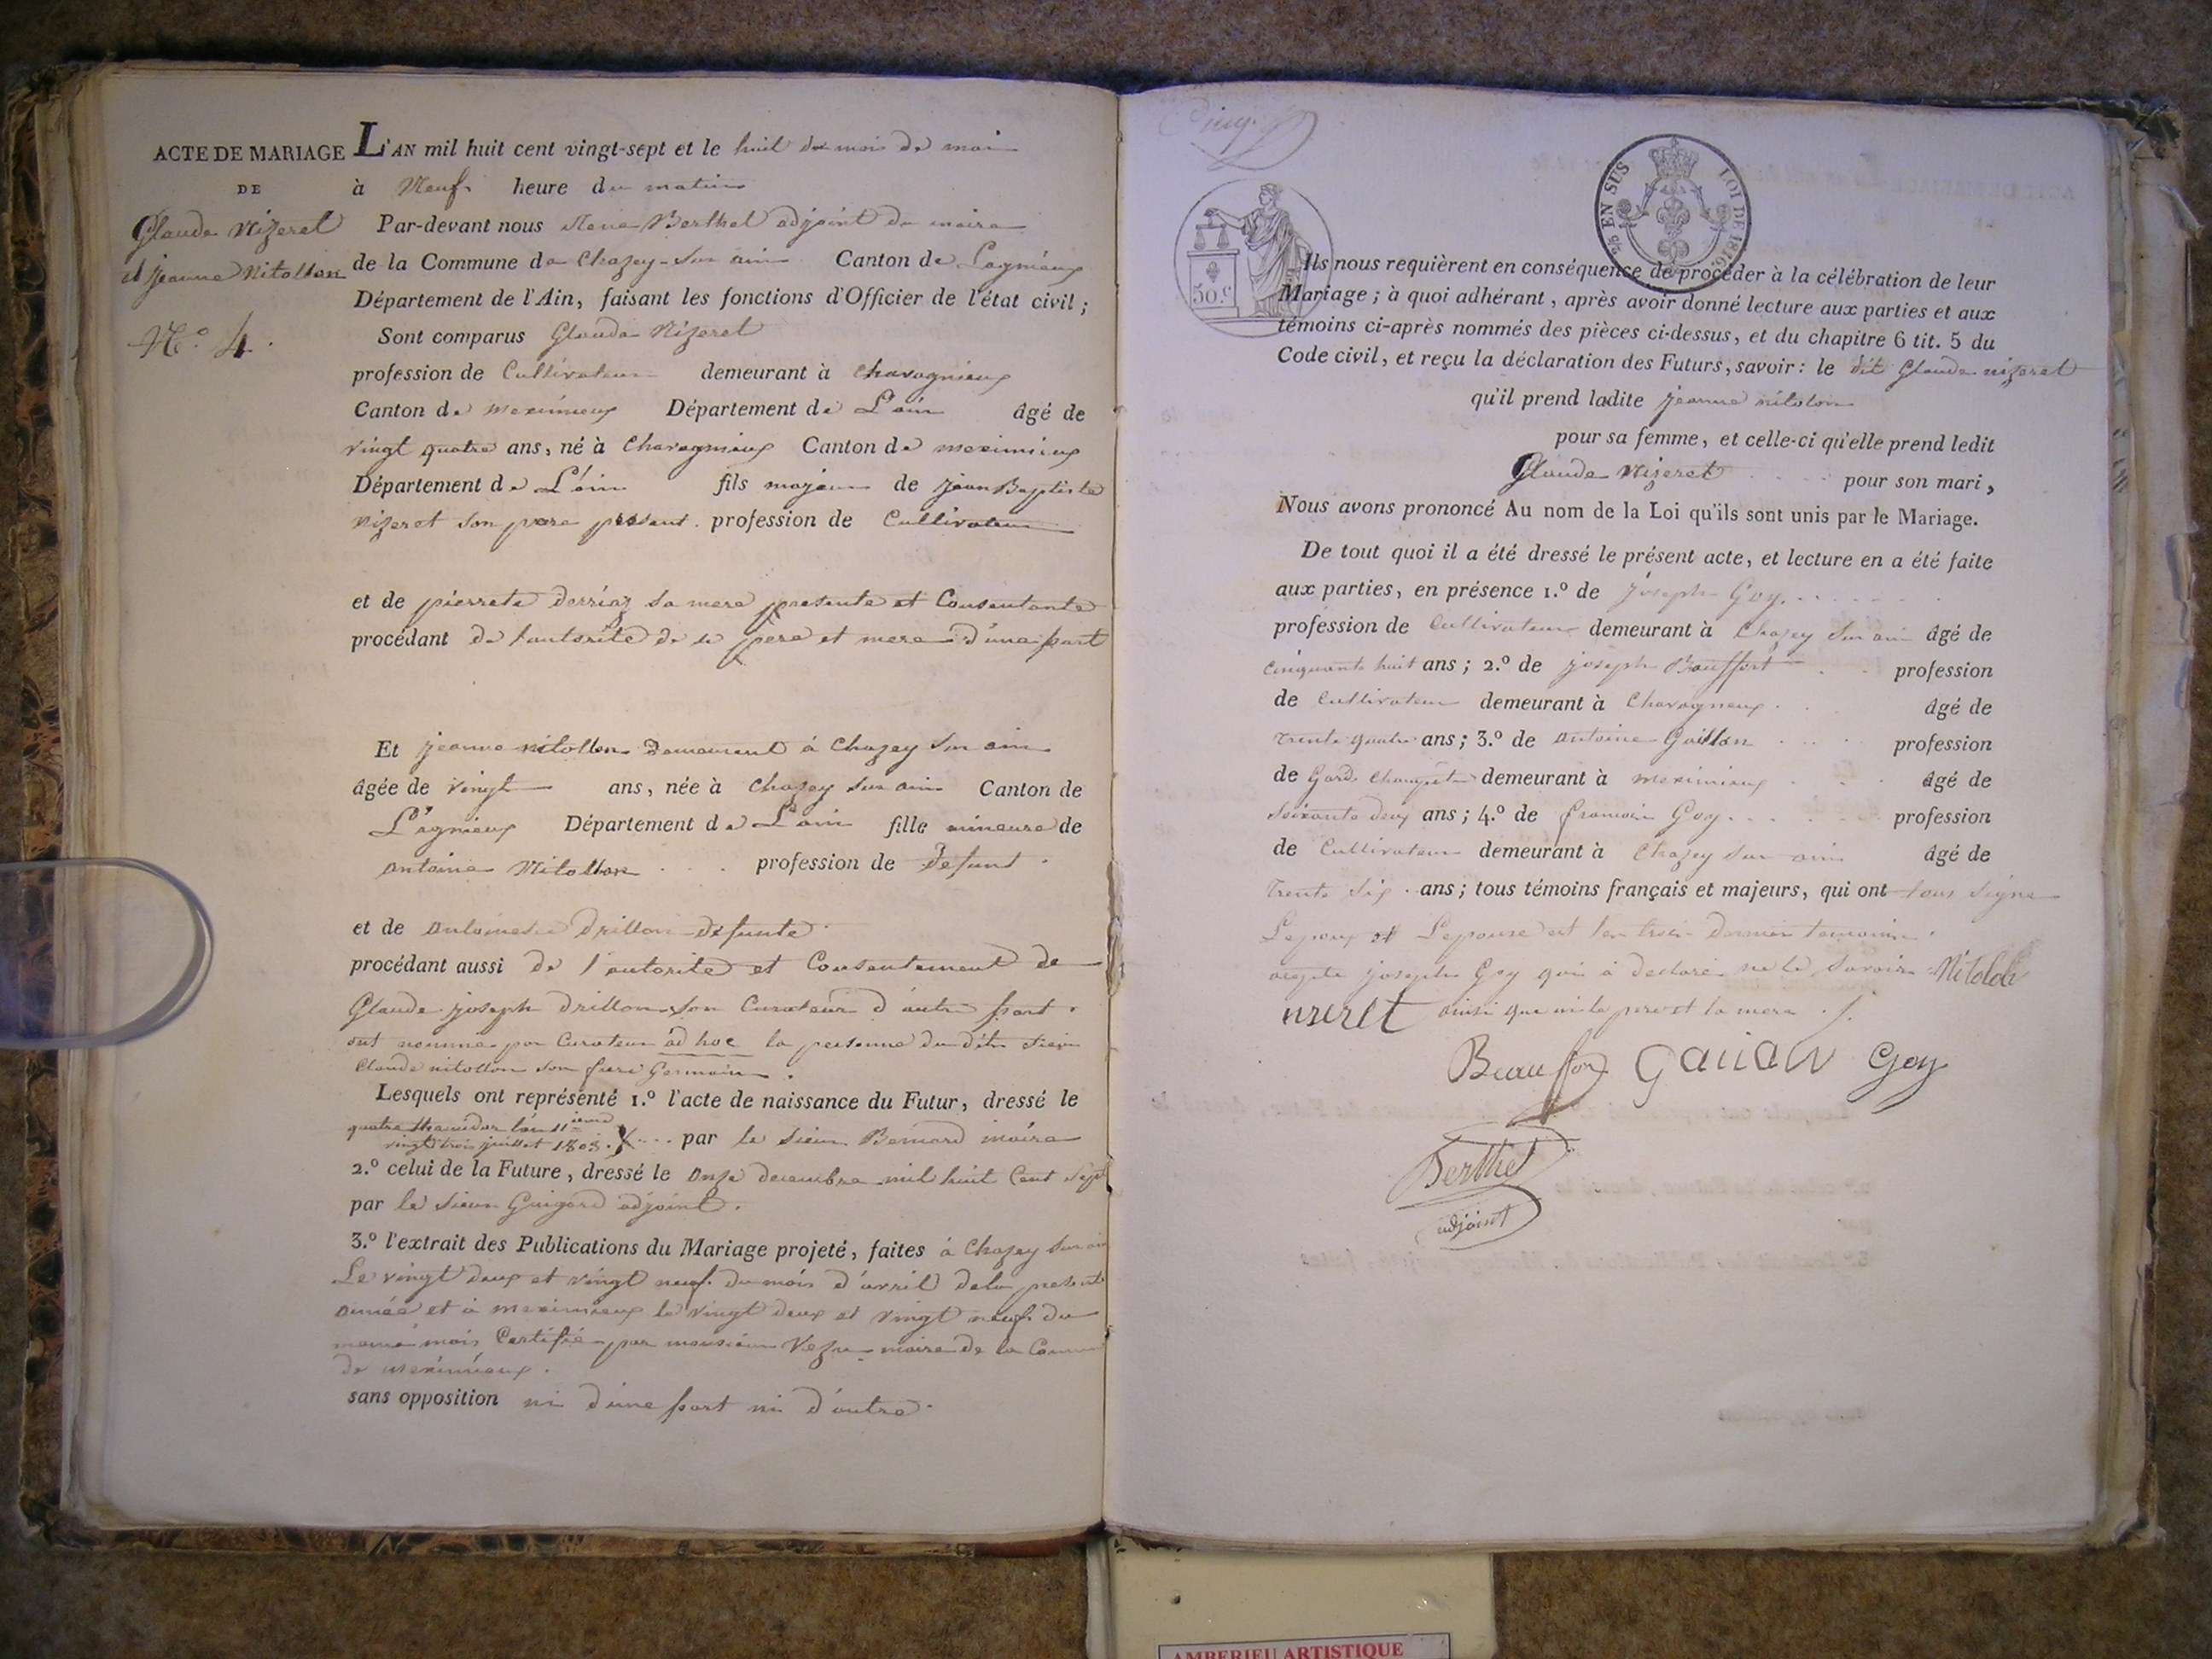 ACTE DE MARIAGE
DE
Glaude Nizeret
et jeanne Nitollon
N.º 4.
L'AN mil huit cent vingt-sept et le huit du mois de mai
à Neuf heure du matin
Par-devant nous Berthet adjoint du maire
de la Commune de Chazey-sur ain Canton de Lagnieux
Département de l'Ain, faisant les fonctions d'Officier de l'état civil;
Sont comparus Glaude Nizeret
profession de Cultivateur demeurant à Charagnieux
Canton de meximieux Département de L'ain âgé de
vingt quatre ans, né à Charagnieux Canton de meximieux
Département de L'ain fils majeur de jean Baptiste
Nizeret son pere present profession de Cultivateur
et de pierrete derriaz sa mere presente et Consentante
procédant de l'autorité de se pere et mere d'une part
Et jeanne nitollon demeurent à Chazey sur ain
âgée de vingt ans, née à Chazey sur ain Canton de
L'agnieux Département de L'ain fille mineure de
antoine Nitollon profession de defunt
et de antoinette Drillon defunte
procédant aussi de l'autorité et Consentement de
Glaude joseph Drillon son Curateur d'autre part.
ont nommé pour Curateur ad hoc la personne du dit sieur
Claude nitollon son frere Germain.
Lesquels ont représenté 1.º l'acte de naissance du Futur, dressé le
quatre thermidor l'an 11
vingt trois juillet 1803. par le sieur Bernard maire
2.º celui de la Future, dressé le onze decembre mil huit Cent sept
par le sieur Guigard adjoint.
3.º l'extrait des Publications du Mariage projeté, faites à Chazey sur ain
Le vingt deux et vingt neuf du mois d'avril dela presente
année et à meximieux le vingt deux et vingt neuf du
meme mois Certifié par monsieur maire de la
de meximieux.
sans opposition ni d'une part ni d'autre.
50.c
EN SUS LOI DE 1816.
Ils nous requièrent en conséquence de procéder à la célébration de leur
Mariage; à quoi adhérant, après avoir donné lecture aux parties et aux
témoins ci-après nommés des pièces ci-dessus, et du chapitre 6 tit. 5 du
Code civil, et reçu la déclaration des Futurs, savoir: le dit Glaude nizeret
qu'il prend ladite jeanne nitolon
pour sa femme, et celle-ci qu'elle prend ledit
Glaude Nizeret pour son mari,
Nous avons prononcé Au nom de la Loi qu'ils sont unis par le Mariage.
De tout quoi il a été dressé le présent acte, et lecture en a été faite
aux parties, en présence 1.º de Joseph Goy
profession de Cultivateur demeurant à Chazey sur ain âgé de
cinquante huit ans; 2.º de joseph Bauffort profession
de Cultivateur demeurant à Charagneux âgé de
trente quatre ans; 3.º de antoine profession
de Garde Champêtre demeurant à meximieux âgé de
soixante deux ans; 4.º de francois Goy profession
de Cultivateur demeurant à Chazey sur ain âgé de
trente six ans; tous témoins français et majeurs, qui ont tous signe
Lepoux et Lepouse et les trois dernier temoins
joseph Goy qui à declaré ne le savoir
ainsi que ni le pere et la mere.
Beaufort Goy
Berthet
adjoint
AMBERIEU ARTISTIQUE